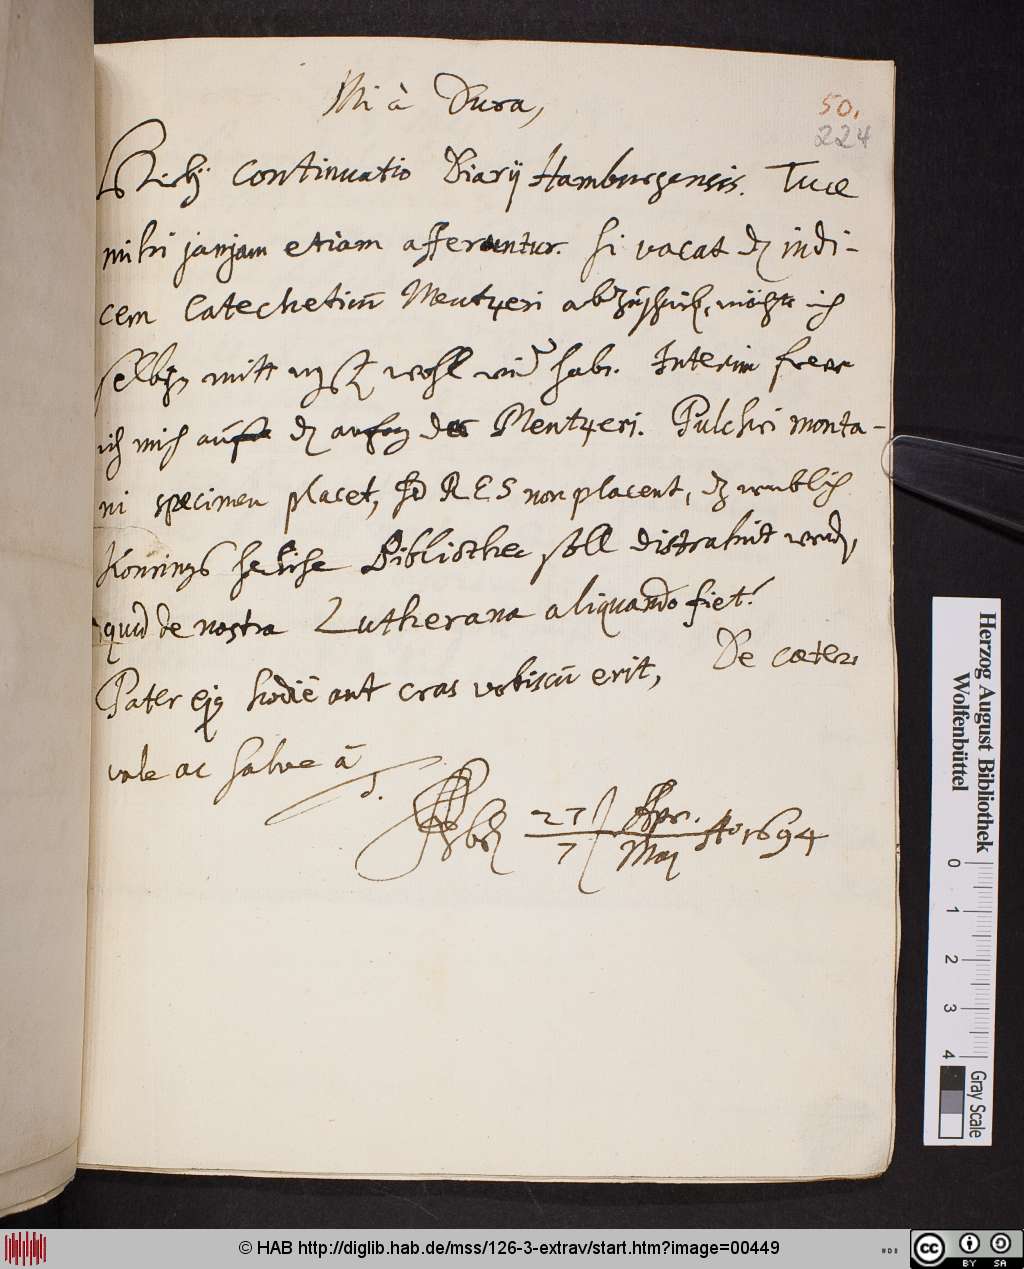 Mi à Dura,
50.
224
continuatio Diarij Hamburgensis. Tuae
mihi jamjam etiam afferuntur. Si vacat dz indi-
cem Catecheticū Mentzeri abzuschreib, möchte ich
selbst mitt wohl hab. Interim frewe
ich mich auff dz anfang des Mentzeri. Pulchri monta-
ni specimen placet, sed RES non placent, dz
Konrings Bibliothec soll distrahirt werd,
quid de nostra Lutherana aliquando fiet!
Pater ejus hodiē aut cras vobiscū erit, De caetero
vale ac salve à
27/7 Apr./Maj Aō 1694
Herzog August Bibliothek
Wolfenbüttel
0 1 2 3 4
Gray Scale
© HAB http://diglib.hab.de/mss/126-3-extrav/start.htm?image=00449
cc BY SA